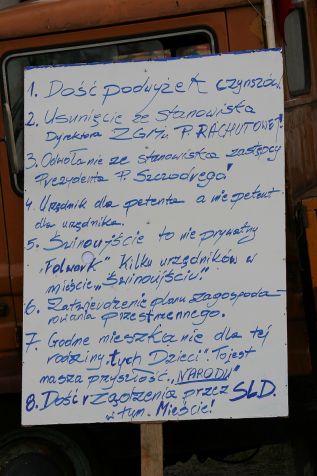 1. Dość podwyżek czynszów.
2. Usunięcie ze stanowiska
Dyrektora ZGM. P. RACHUTOWEJ!
3. Odwołanie ze stanowiska zastępcy
Prezydenta P. Szczodrego!
4. Urzędnik dla petenta a nie petent
dla urzędnika.
5. Świnoujście to nie prywatny
"Folwark" Kilku urzędników w
mieście "Świnoujściu"
6. Zatwierdzenie planu zagospoda-
rowania przestrzennego.
7. Godne mieszkanie dla tej
rodziny i tych Dzieci". To jest
nasza przyszłość. "NARODU"
8. Dość rządzenia przez SLD.
w tym. Mieście!